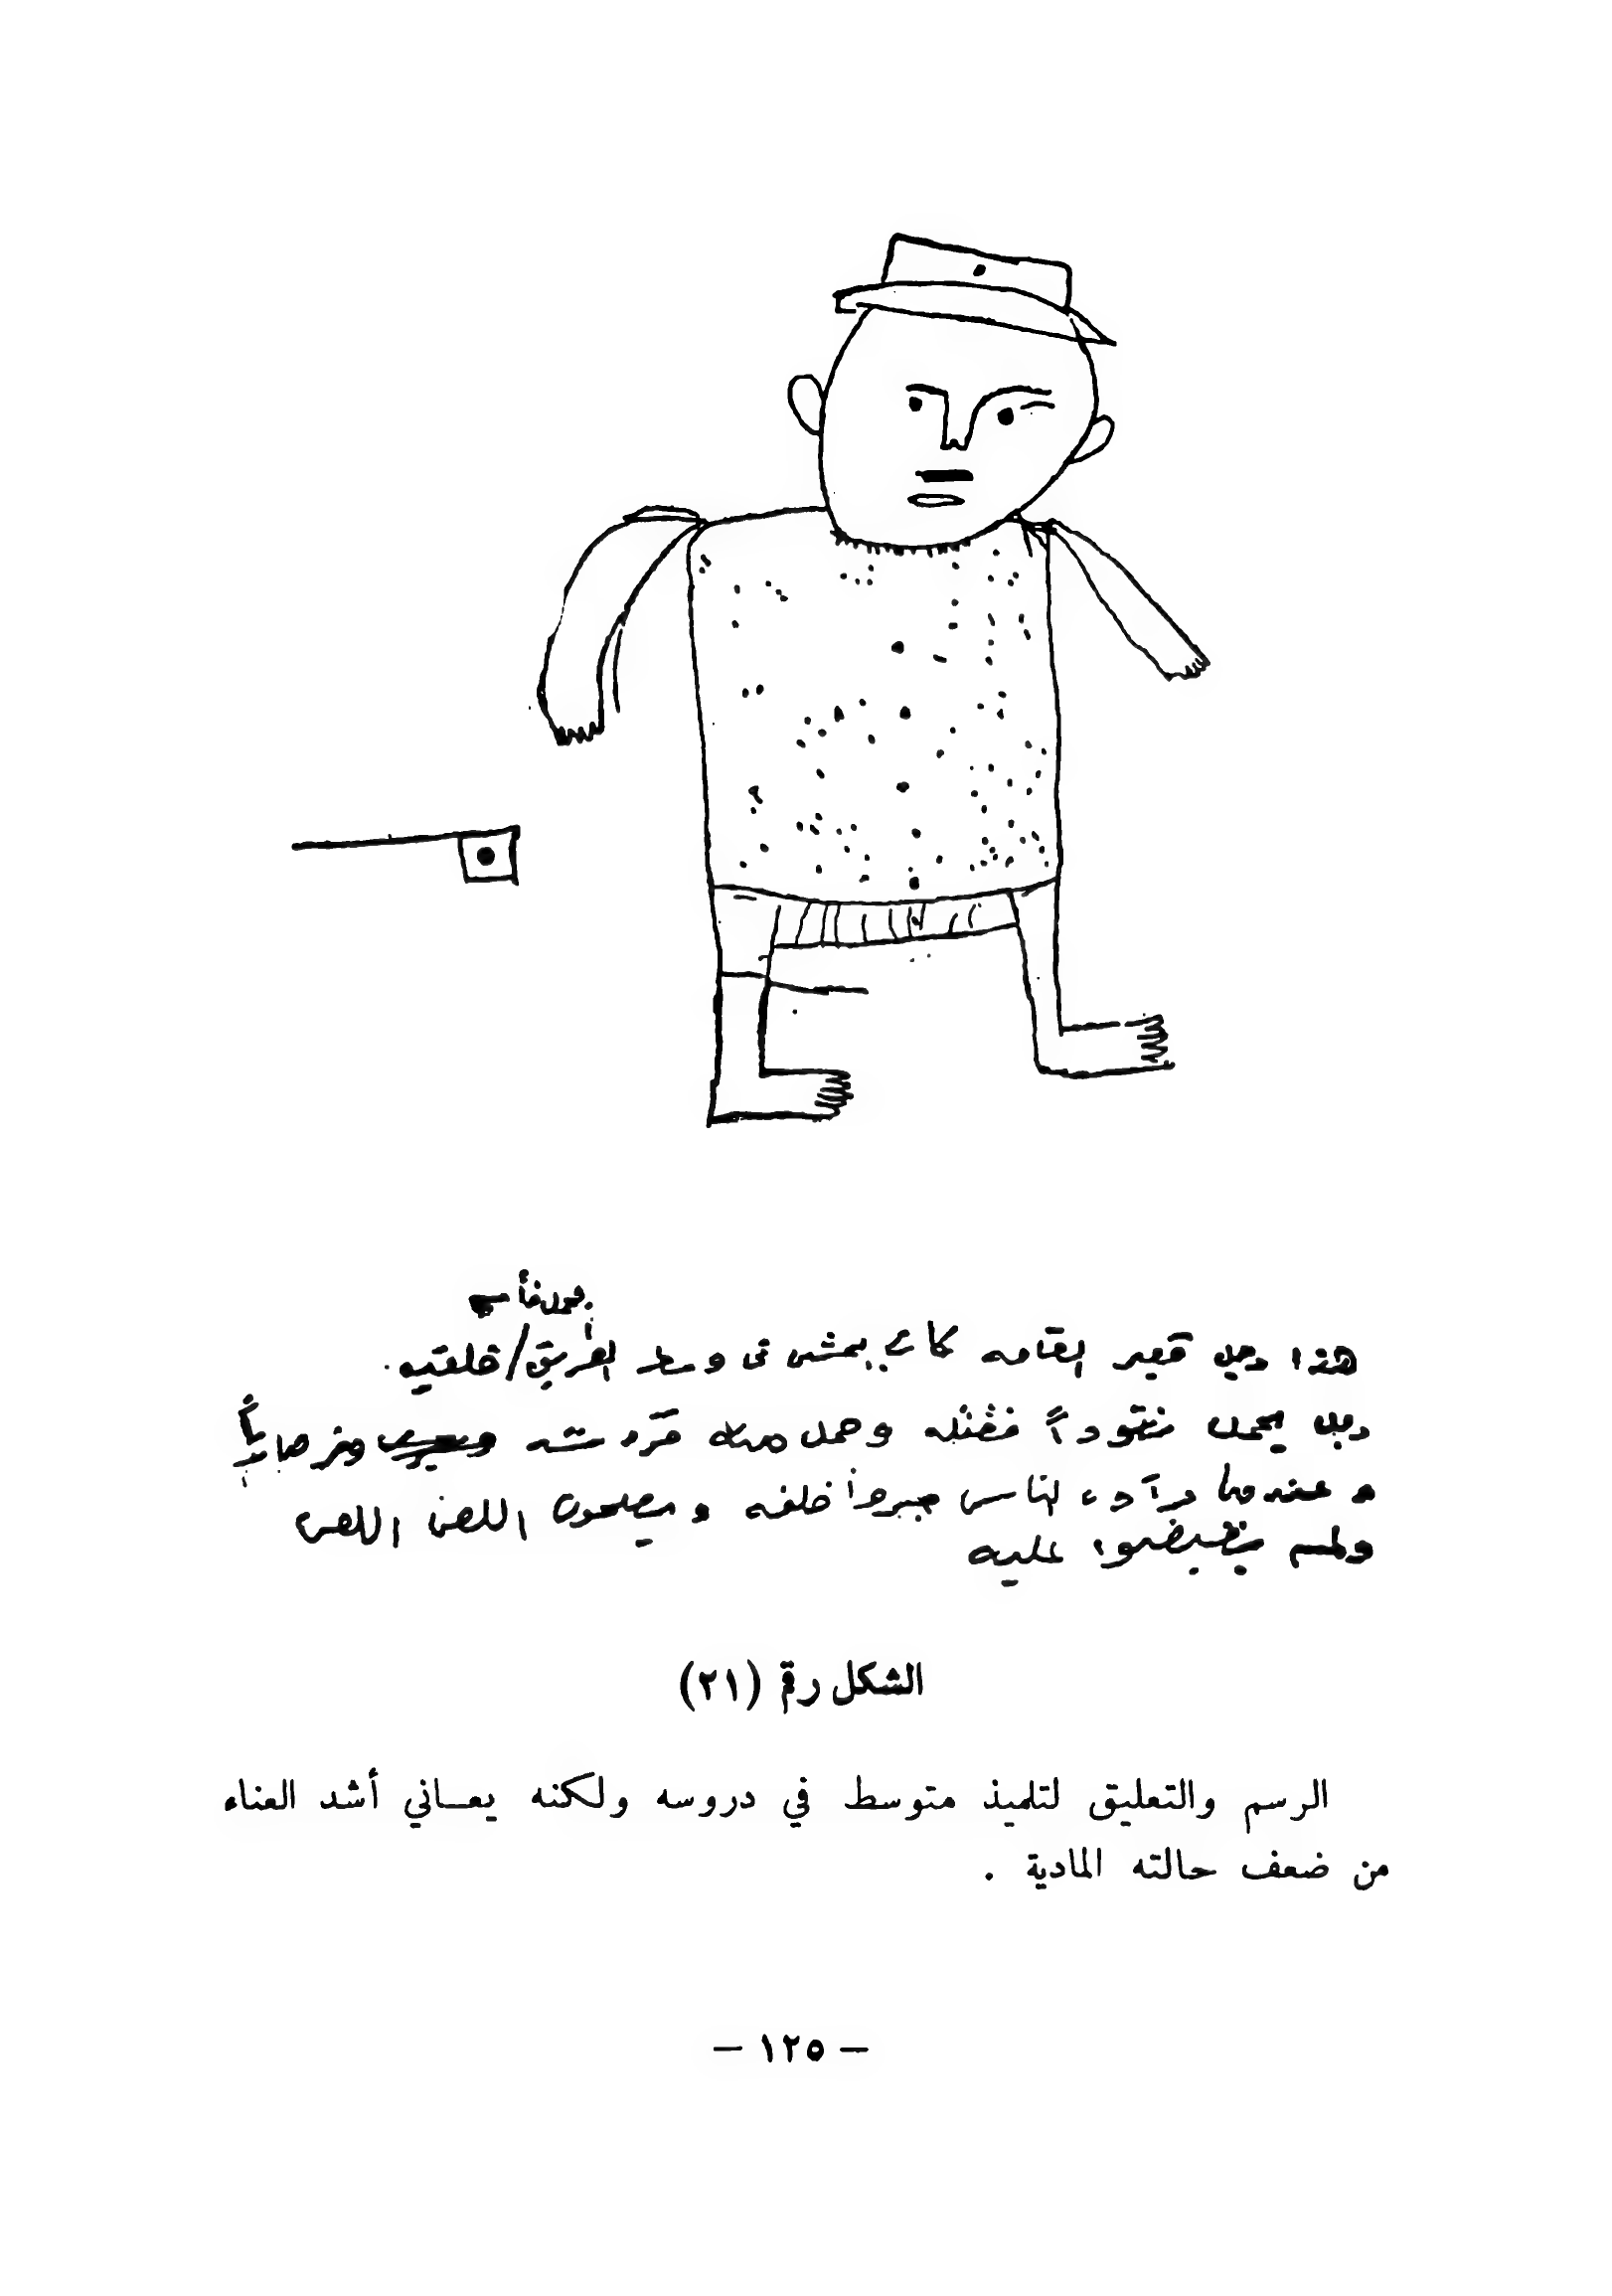 يحمل فأس
هذا رجل قصير القامه كان يمشي في وسط الطريق/فلقيه
رجل يحمل نقوداً فقتله وحمل منه قرد شه وفر هارباً
وعندما رآه الناس جروا خلفه ويصيحون اللص اللص
ولم يقبضوا عليه
الشكل رقم (٢١)
الرسم والتعليق لتلميذ متوسط في دروسه ولكنه يعــاني أشد العناء
من ضعف حالته المادية .
– ١٢٥ –